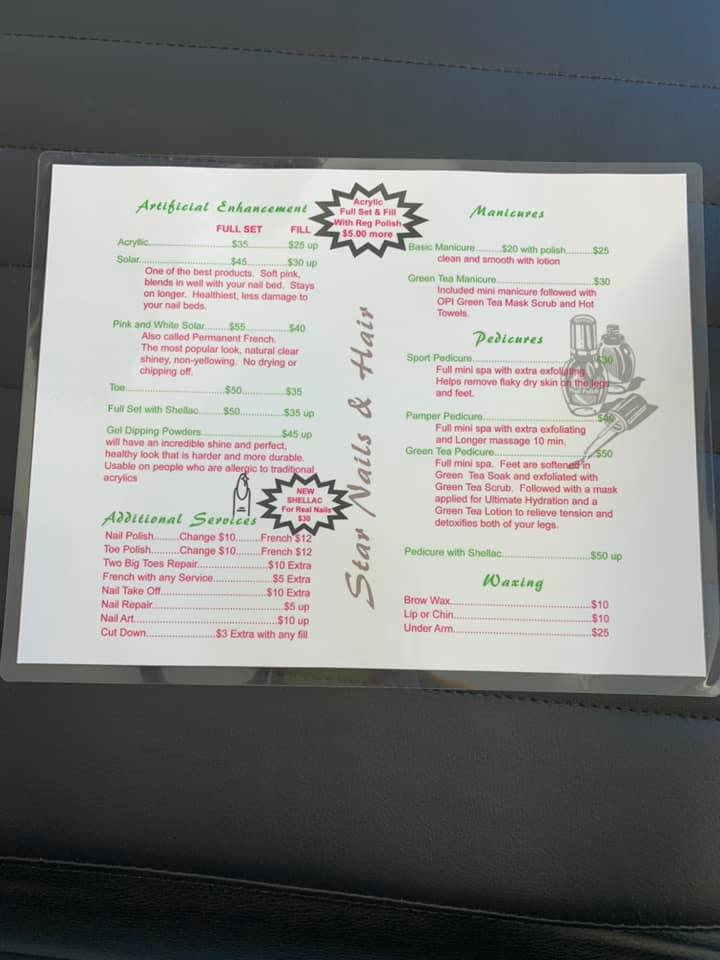 Artificial Enhancement
FULL SET FILL
Acrylic..........................$35............$25 up
Solar..............................$45............$30 up
One of the best products. Soft pink,
blends in well with your nail bed. Stays
on longer. Healthiest, less damage to
your nail beds.
Pink and White Solar........$55...............$40
Also called Permanent French.
The most popular look, natural clear
shiney, non-yellowing. No drying or
chipping off.
Toe.................................$50..............$35
Full Set with Shellac........$50..............$35 up
Gel Dipping Powders..........................$45 up
will have an incredible shine and perfect,
healthy look that is harder and more durable.
Usable on people who are allergic to traditional
acrylics
Additional Services
Nail Polish.........Change $10.........French $12
Toe Polish.........Change $10.........French $12
Two Big Toes Repair.......................$10 Extra
French with any Service..................$5 Extra
Nail Take Off...................................$10 Extra
Nail Repair..........................................$5 up
Nail Art..............................................$10 up
Cut Down.......................$3 Extra with any fill
Acrylic
Full Set & Fill
With Reg Polish
$5.00 more
NEW
SHELLAC
For Real Nails
$30
Star Nails & Hair
Manicures
Basic Manicure.........$20 with polish.........$25
clean and smooth with lotion
Green Tea Manicure.................................$30
Included mini manicure followed with
OPI Green Tea Mask Scrub and Hot
Towels.
Pedicures
Sport Pedicure..........................................$30
Full mini spa with extra exfoliating.
Helps remove flaky dry skin on the legs
and feet.
Pamper Pedicure.......................................
Full mini spa with extra exfoliating
and Longer massage 10 min.
Green Tea Pedicure...................................$50
Full mini spa. Feet are softened in
Green Tea Soak and exfoliated with
Green Tea Scrub. Followed with a mask
applied for Ultimate Hydration and a
Green Tea Lotion to relieve tension and
detoxifies both of your legs.
Pedicure with Shellac..............................$50 up
Waxing
Brow Wax..................................................$10
Lip or Chin.................................................$10
Under Arm.................................................$25